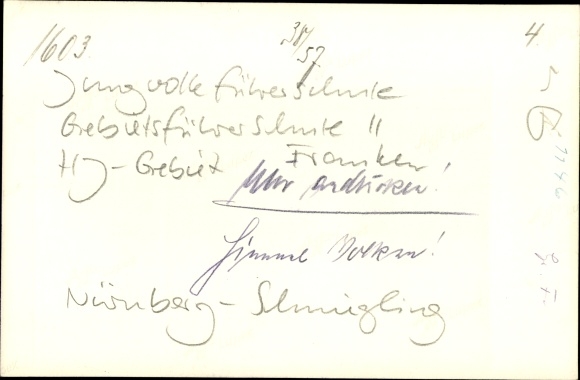 1603. 38/57 4.
Jungvolkführerschule
Gebietsführerschule II
HJ-Gebiet Franken
andrucken!
Himmel Wolken!
Nürnberg-Schniegling